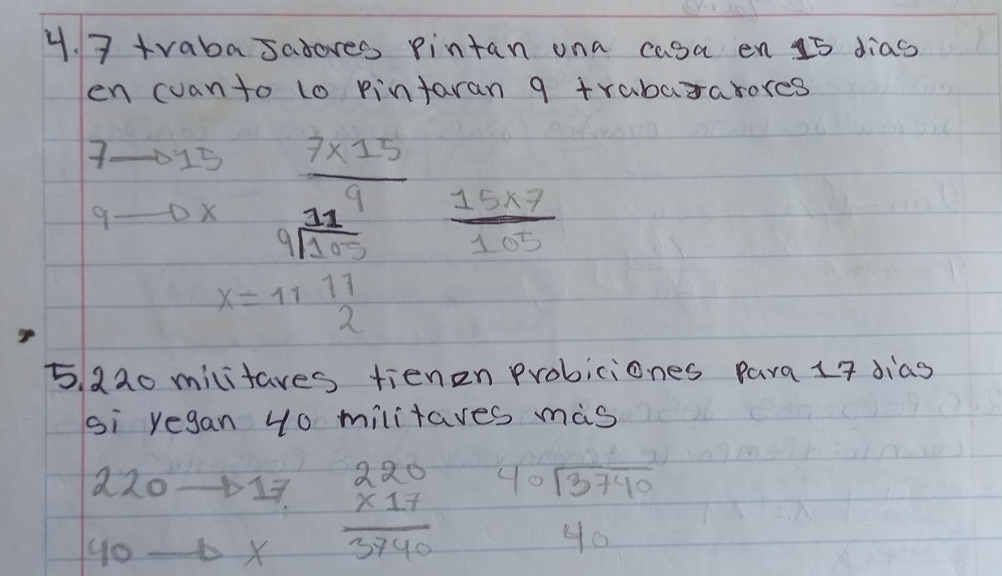 4. 7 trabaJadores pintan una casa en 15 dias
en cuanto lo pintaran 9 trabaJarores
7 → 15 7 x 15
9 → x 9 15 x 7
11 105
9 105
x = 11 11
2
5. 220 militares tienen probiciones para 17 dias
si yegan 40 militares más
220 → 17 220 40 3740
x 17
40 → x 3740 40